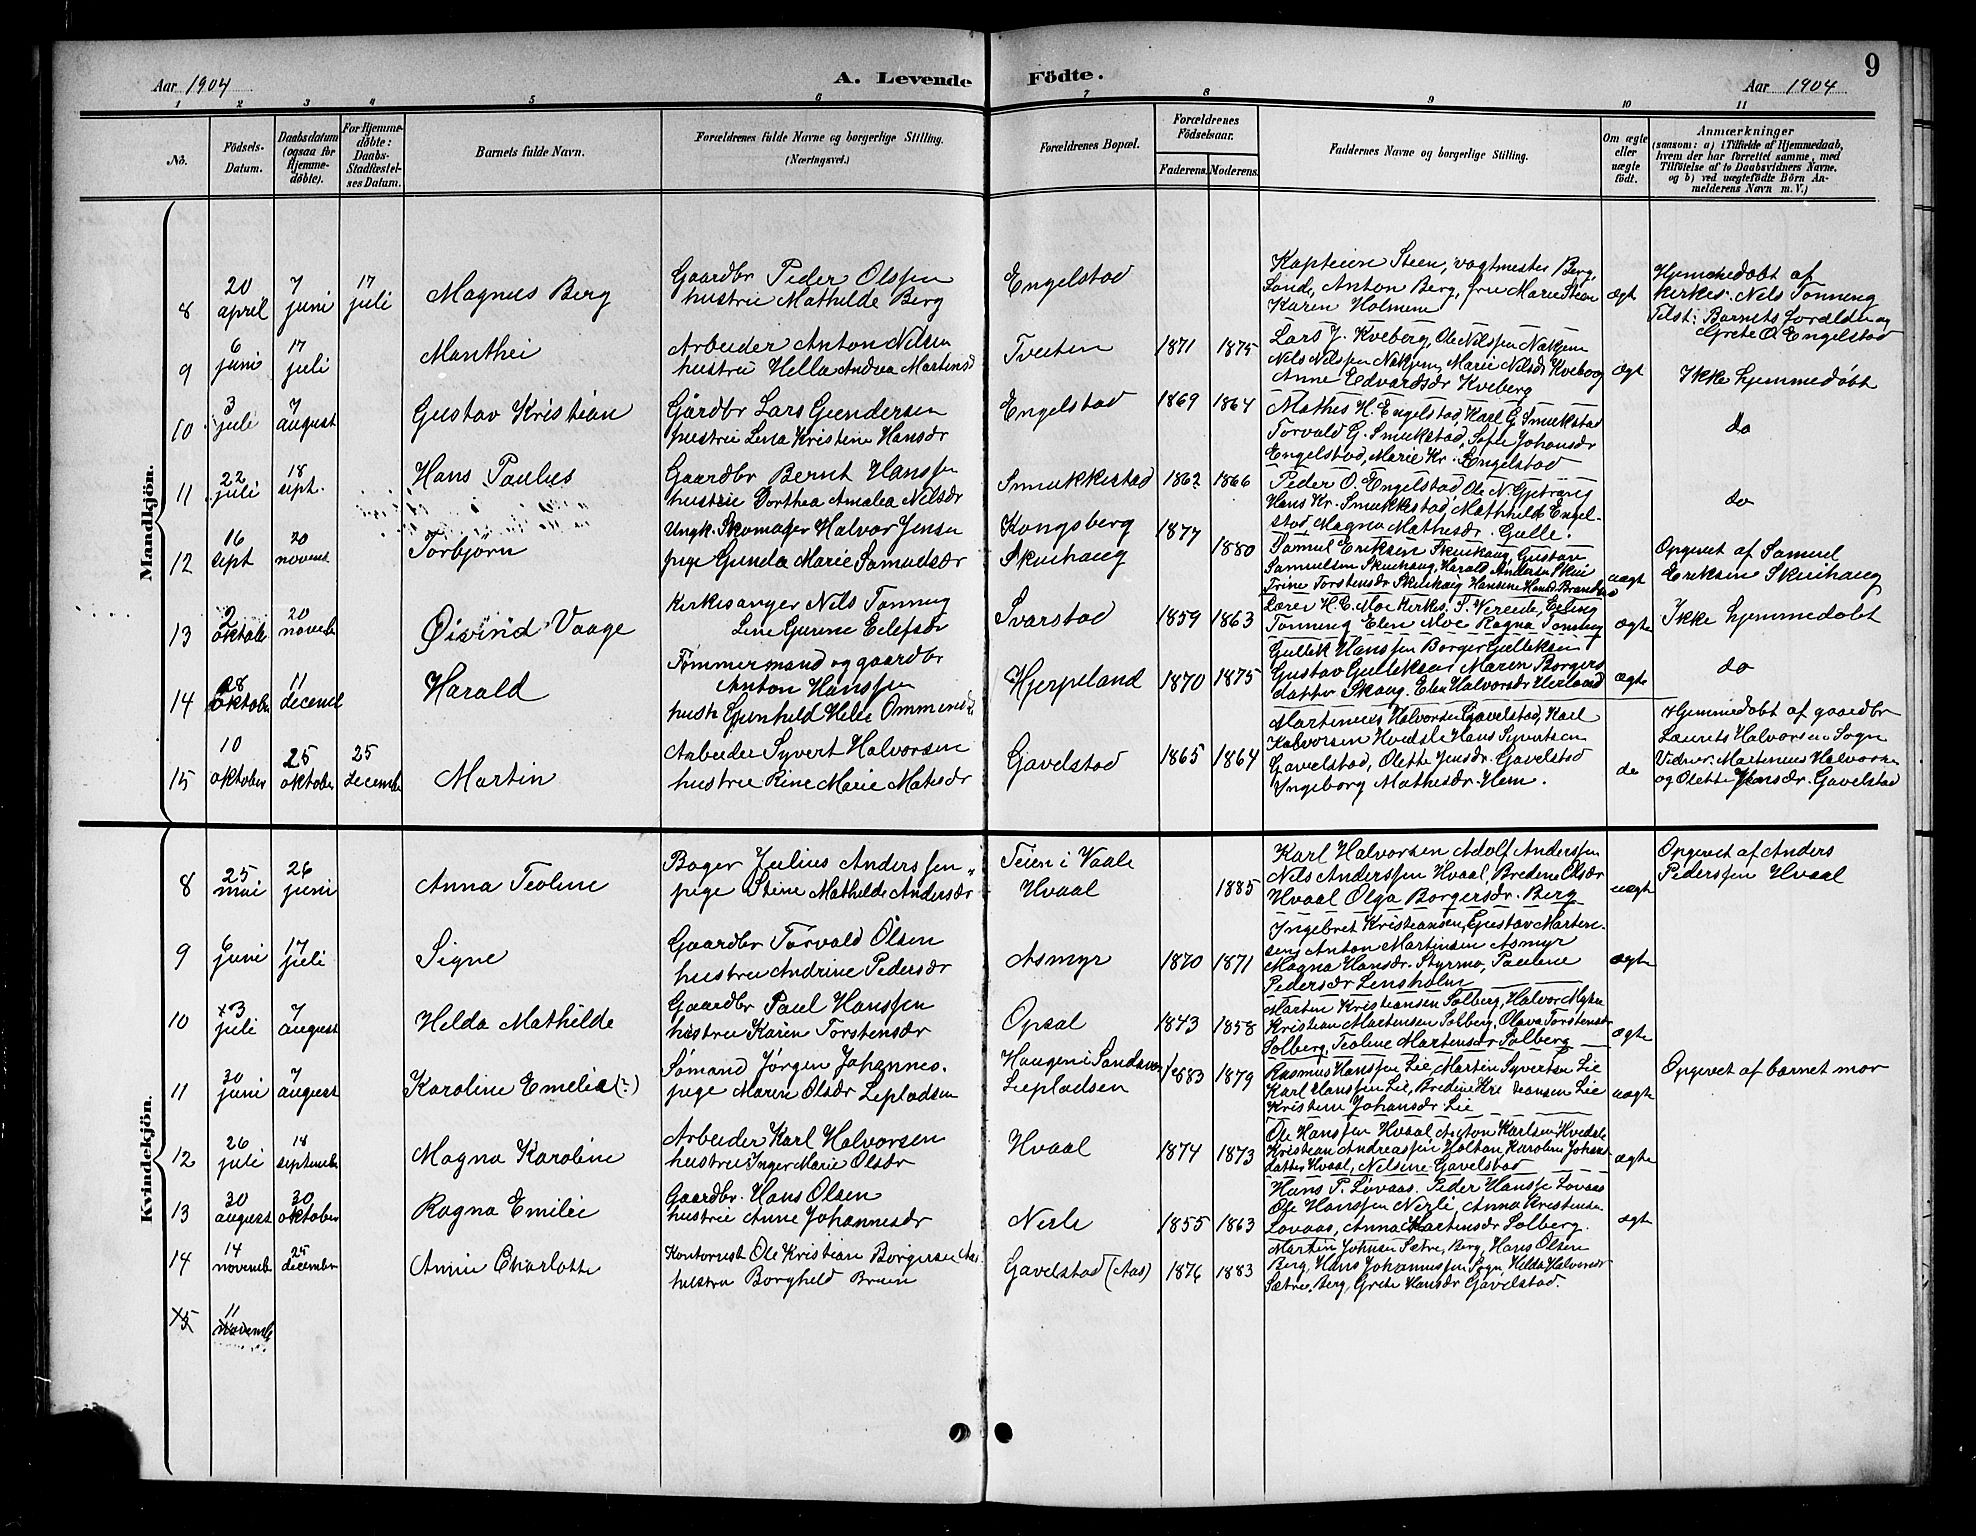 Aar 1904
A. Levende Födte.
Aar 1904
9
1 2 3 4 5 6 7 8 9 10 11
No.
Födsels-Datum.
Daabsdatum (ogsaa för Hjemme-döbte).
For Hjemme-döbte: Daabs-Stadfæstel-ses Datum.
Barnets fulde Navn.
Forældrenes fulde Navne og borgerlige Stilling. (Næringsvei.)
Forældrenes Bopæl.
Forældrenes Födselsaar.
Faderens. Moderens.
Faddernes Navne og borgerlige Stilling.
Om ægte eller uægte födt.
Anmærkninger
(saasom: a) i Tilfælde af Hjemmedaab, hvem der har forrettet samme, med Tilföielse af to Daabsvidners Navne, og b) ved uægtefödte Börn An-melderens Navn m. V.)
Mandkjön.
8
20 april
7 juni
17 juli
Magnus Berg
Gaardbr Peder Olssen
hustru Mathilde Berg
Engelstad
Kaptein Steen, vagtmester Berg,
Anton Berg, fru Marie Steen
Karen Holmen
ægt
Hjemmedøbt af
kirkes. Nils Tonning
Tilst: Barnets forældre og
Grete O. Engelstad
9
6 juni
17 juli
Manthei
Arbeider Anton Nilsen
hustru Hella Andrea Martensd
Tveiten
1871 1875
Lars J. Kveberg, Ole Nilssen Nækjem
Nils Nilssen Nækjem, Marie Nilsdr Kveberg
Anne Edvardsdr Kveberg
ægt
Ikke hjemmedøbt
10
3 juli
7 august
Gustav Kristian
Gårdbr Lars Gundersen
hustru Lina Kristine Hansdr
Engelstad
1869 1864
Mathis H. Engelstad, Karl G Smukstad
Torvald G. Smukstad, Sofie Johansdr
Engelstad, Marie Kr. Engelstad
do
11
22 juli
18 sept.
Hans Paulus
Gaardbr Bernt Hanssen
hustru Dorthea Amalea Nilsdr
Smukkestad
1862 1866
Peder O. Engelstad, Ole N.
Hans Kr. Smukkestad, Mathilde Engel-
stad, Magna Mathisdr. Gulle.
do
12
16 sept
20 novemb
Torbjørn
Ungk. Skomager Halvor Jensen
pige Gunda Marie Samuelsdr
Kongsberg
Skuihaug
1877
1880
Samuel Eriksen Skuihaug, Gustav
Samuelsen Skuihaug, Harald Andersen Skui
Trine Torstensdr Skuihaug Hansine Hansd.
uægt
Opgivet af Samuel
Eriksen Skuihaug
13
2 oktober
20 novembr
Øivind Vaage
Kirkesanger Nils Tonning
Line Gurine Eilefsdr
Svarstad
1859 1863
Lærer H. E. Moe Kirkes,
Tonning Elen Moe Ragna Tonning
ægte
Ikke hjemmedøbt
14
28 oktober
11 decemb
Harald
Tømmermand og gaardbr
Anton Hanssen
hustr Gunhild Helle
Hjerpeland
1870 1875
Gullik Hanssen Borger Gulliksen
Gustav Gulliksen Maren Borgers
datter Skaug. Elen Halvorsdr
ægte
do
15
10 oktober
25 oktober
25 decembr
Martin
Arbeider Syvert Halvorsen
hustru Rine Marie Matisdr
Gavelstad
1865 1864
Martinius Halvorsen Gavelstad, Karl
Halvorsen Hvedsle Hans Syvertsen
Gavelstad, Olette Jensdr. Gavelstad
Ingeborg Mathisdr. Hem.
do
Hjemmedøbt af gaardbr
Laurits Halvorsen Sogn
Vidner: Martinius Halvorsen
og Olette Jensdr. Gavelstad
Kvindekjön.
8
25 mai
26 juni
Anna Teoline
Bager Julius Anderssen
pige Stine Mathilde Andersdr
Teien i Vaale
Hvaal
1885
Karl Halvorsen Adolf Anderssen
Nils Anderssen Hvaal, Bredine Olsdr
Hvaal Olga Borgersdr. Berg
uægte
Opgivet af Anders
Pederssen Hvaal
9
6 juni
17 juli
Signe
Gaardbr Torvald Olsen
hustru Andrine Pedersdr
Asmyr
1870 1871
Ingebret Kristiansen, Gustav Martin-
sen, Anton Martinsen Asmyr
Magna Hansdr. Styrmo, Pauline
Pedersdr Linsholm
ægte
10
3 juli
7 august
Helda Mathilde
Gaardbr Paul Hanssen
hustru Karen Torstensdr
Opsal
1843 1858
Martin Kristiansen Solberg, Halvor
Kristian Martensen Solberg, Olava Torstensdr
Solberg, Teoline Martensdr Solberg
ægte
11
30 juni
7 august
Karoline Emilie (÷)
Sømand Jørgen Johannes.
pige Maren Olsdr Liepladsen
Haugen i Sandsvær
Liepladsen
1883 1879
Rasmus Hanssen Lie, Martin Syvertsen Lie
Karl Hanssen Lie, Bredine Kristiansen Lie
Kristine Johansdr. Lie
uægte
Opgivet af barnet mor
12
26 juli
18 septembr
Magna Karoline
Arbeider Karl Halvorsen
hustru Inger Marie Olsdr
Hvaal
1874 1873
Ole Hanssen Hvaal, Anton Karlsen Hvedsle
Kristian Andreassen Holtan, Karoline Johans
datter Hvaal, Nilsine Gavelstad
ægte
13
30 august
30 oktober
Ragna Emilie
Gaardbr. Hans Olsen
hustru Anne Johannesdr
Nerle
1855 1863
Hans P. Lovaas. Peder Hanss Lovaas
Ole Hanssen Nerli, Anna Kristensen
Lovaas, Anna Martensdr Solberg.
ægt
14
14 novembr
25 decembr
Anne Charlotte
Kontorist Ole Kristian Borgersen Aas
hustru Borghild Bruun
Gavelstad (Aas)
1876 1883
Martin Johnsen Sætre, Berg, Hans Olsen
Berg, Hans Johannessen Sogn, Helda Halvorsdr
Sætre, Berg, Grete Hansdr Gavelstad.
15
11 novemb